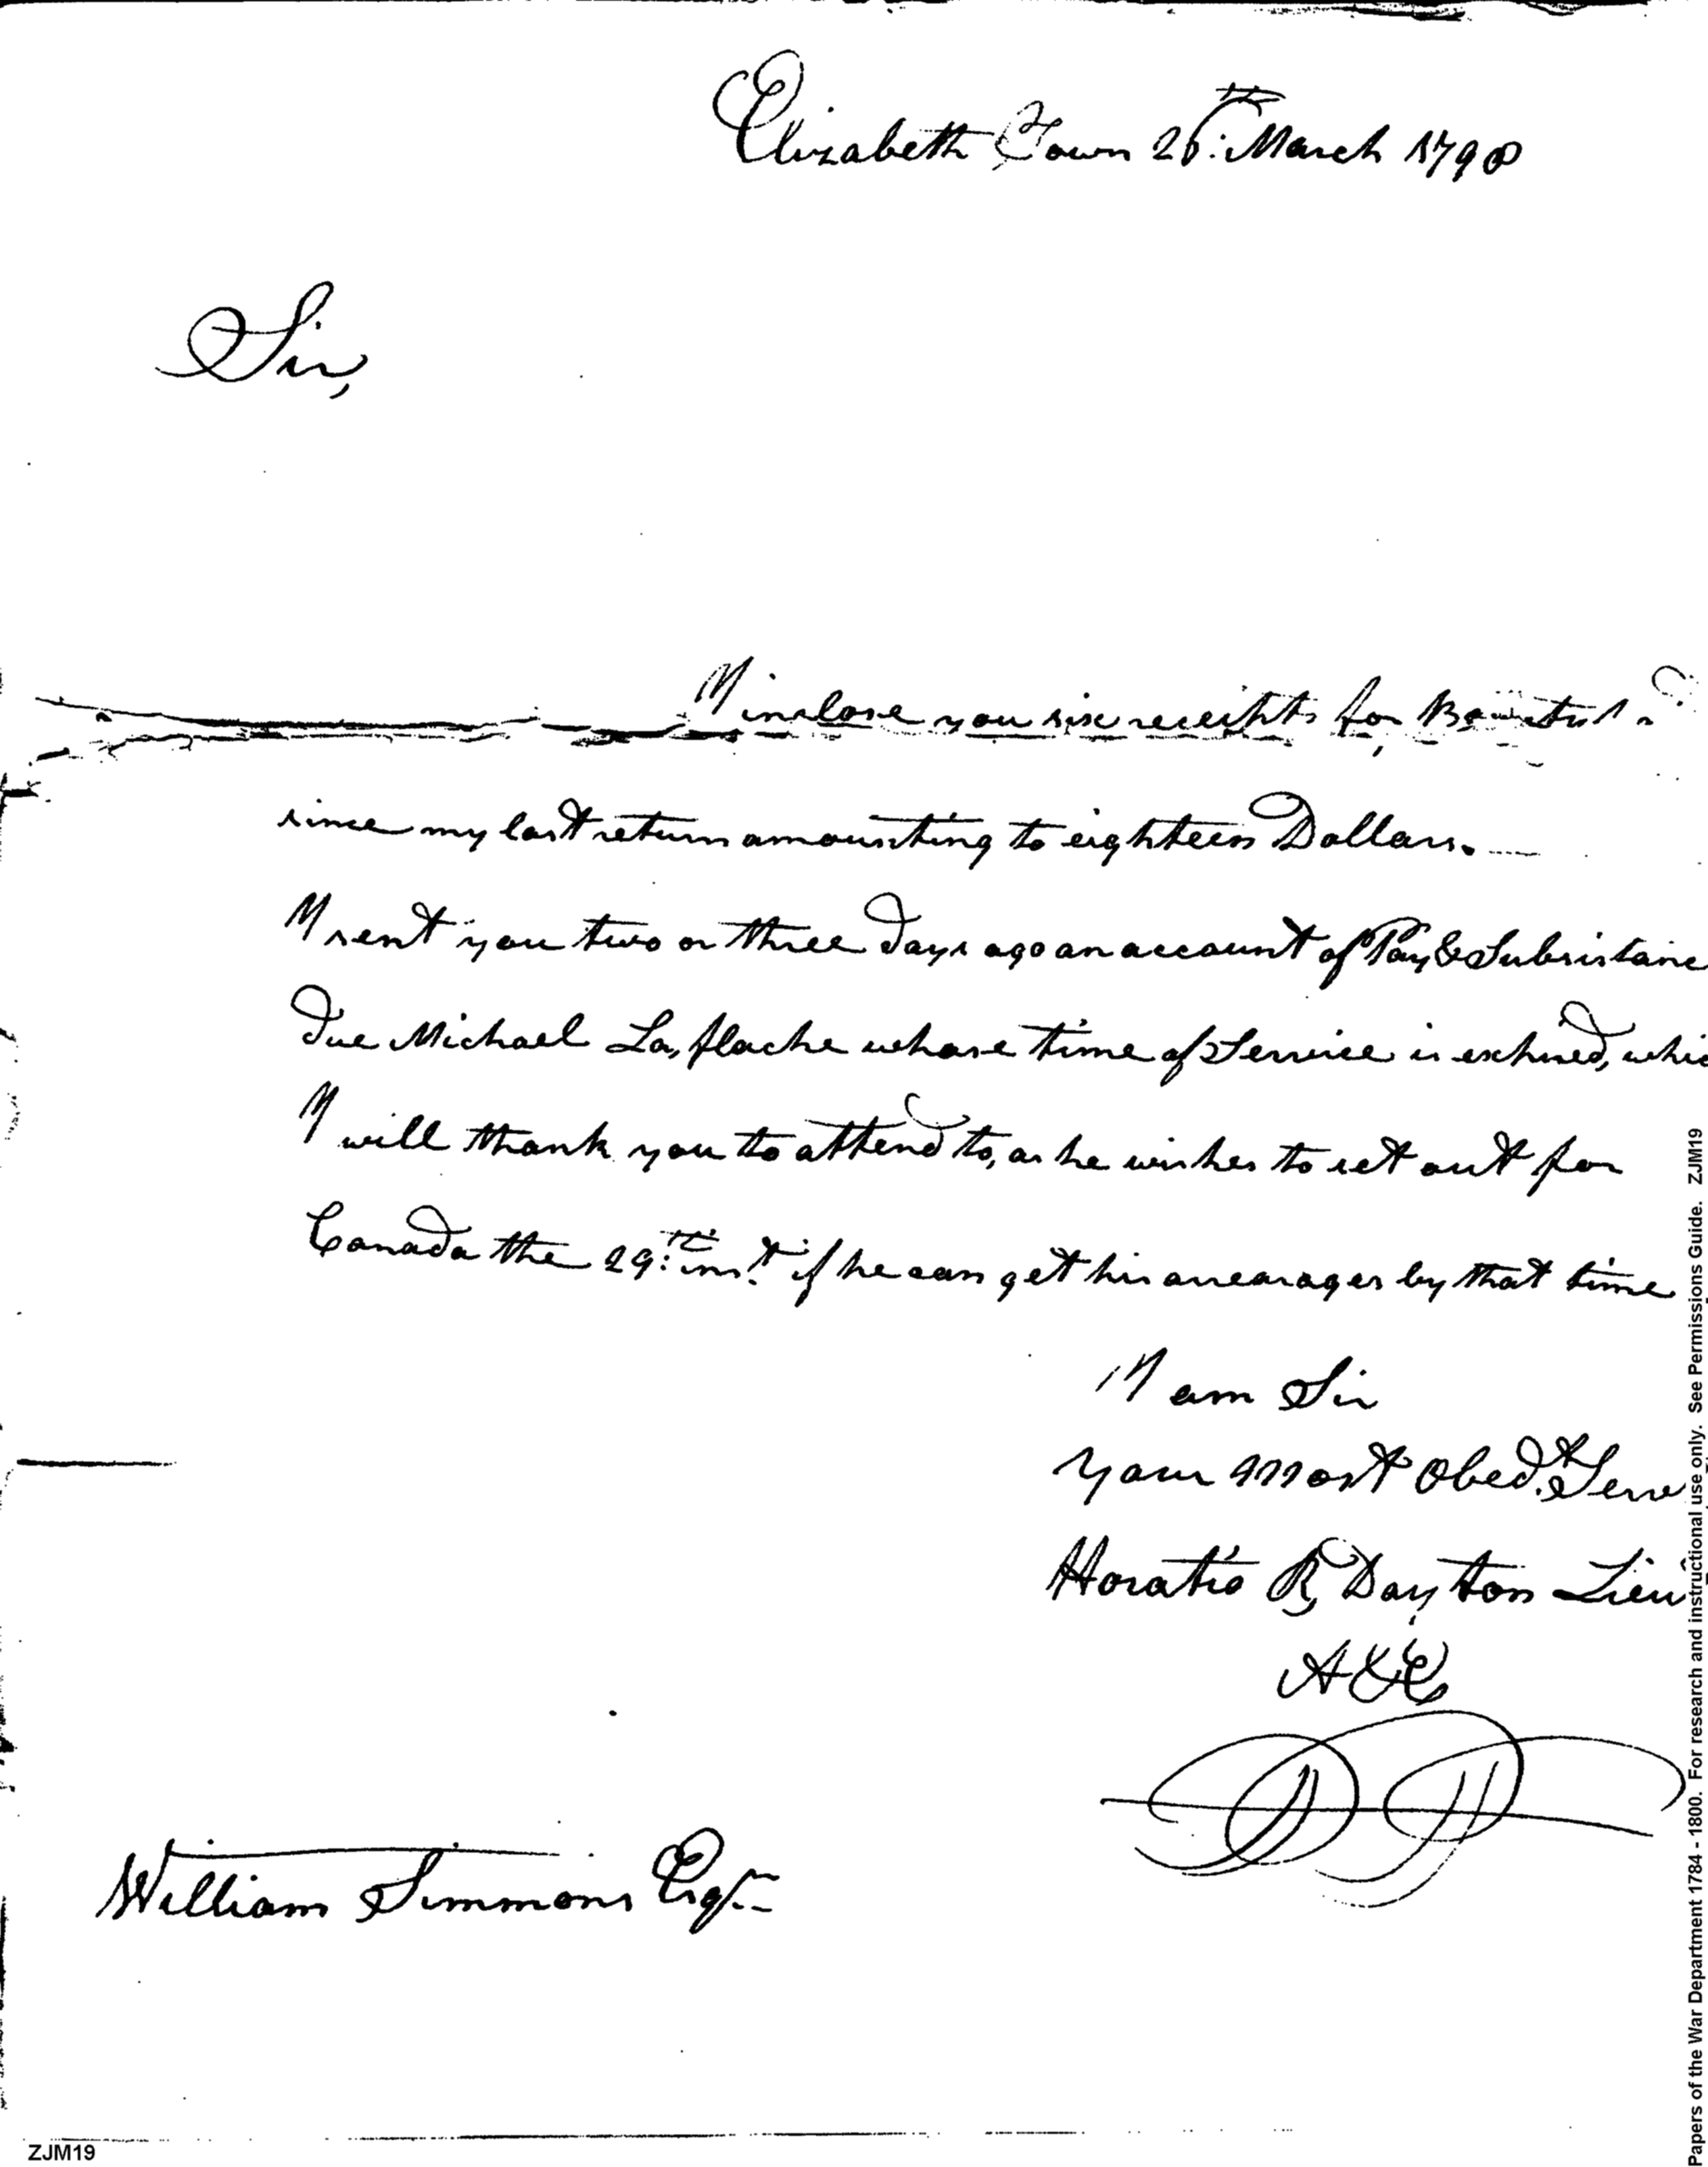 Elizabeth Town 26th March 1798
Sir,
I inclose you six receipts for
since my last return amounting to eighteen Dollars.
I sent you two or three days ago an account of Pay & Subsistanc
due Michael La,flache whose time of Service is expired, whic
I will thank you to attend to, as he wishes to set out for
Canada the 29th inst. if he can get his arrearages by that time
I am Sir
Your most Obedt. Serv
Horatio R, Dayton Lieu
A&E
William Simmons Esqr.
ZJM19
Papers of the War Department 1784 - 1800. For research and instructional use only. See Permissions Guide. ZJM19